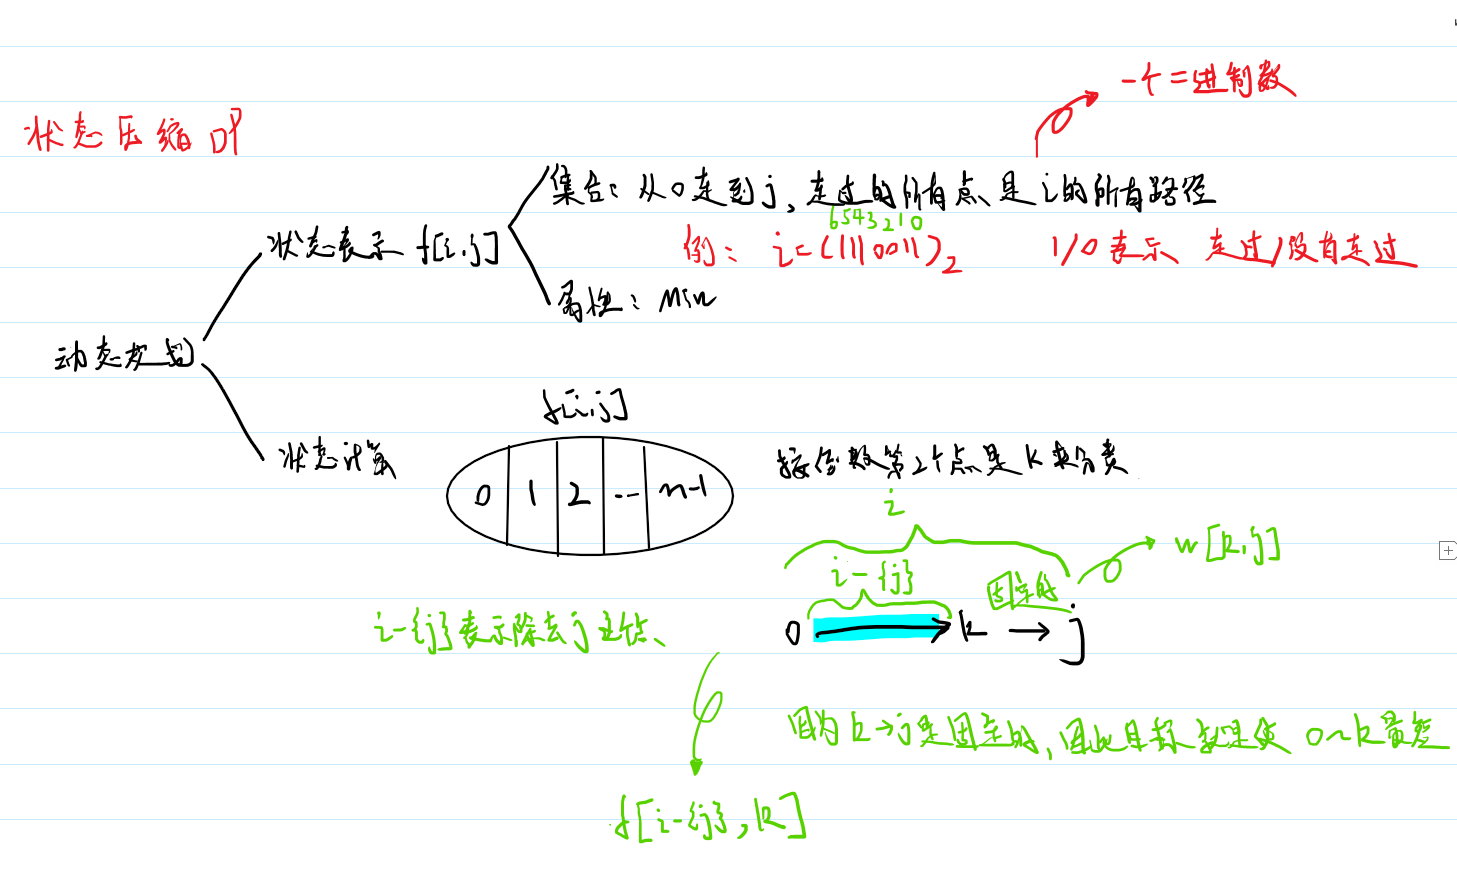 一个二进制数
状态压缩DP
集合：从0走到j，走过的所有点是i的所有路径
6543210
例： i=(1110011)2 1/0表示 走过/没有走过
状态表示 f[i,j]
属性：Min
动态规划
f[i,j]
状态计算
0 1 2 ... n-1
按倒数第2个点是k来分类
i
i-{j}
固定的
w[k,j]
i-{j}表示除去j之后、
0 → k → j
因为k→j是固定的，因此目标就是使 0~k最短
f[i-{j},k]